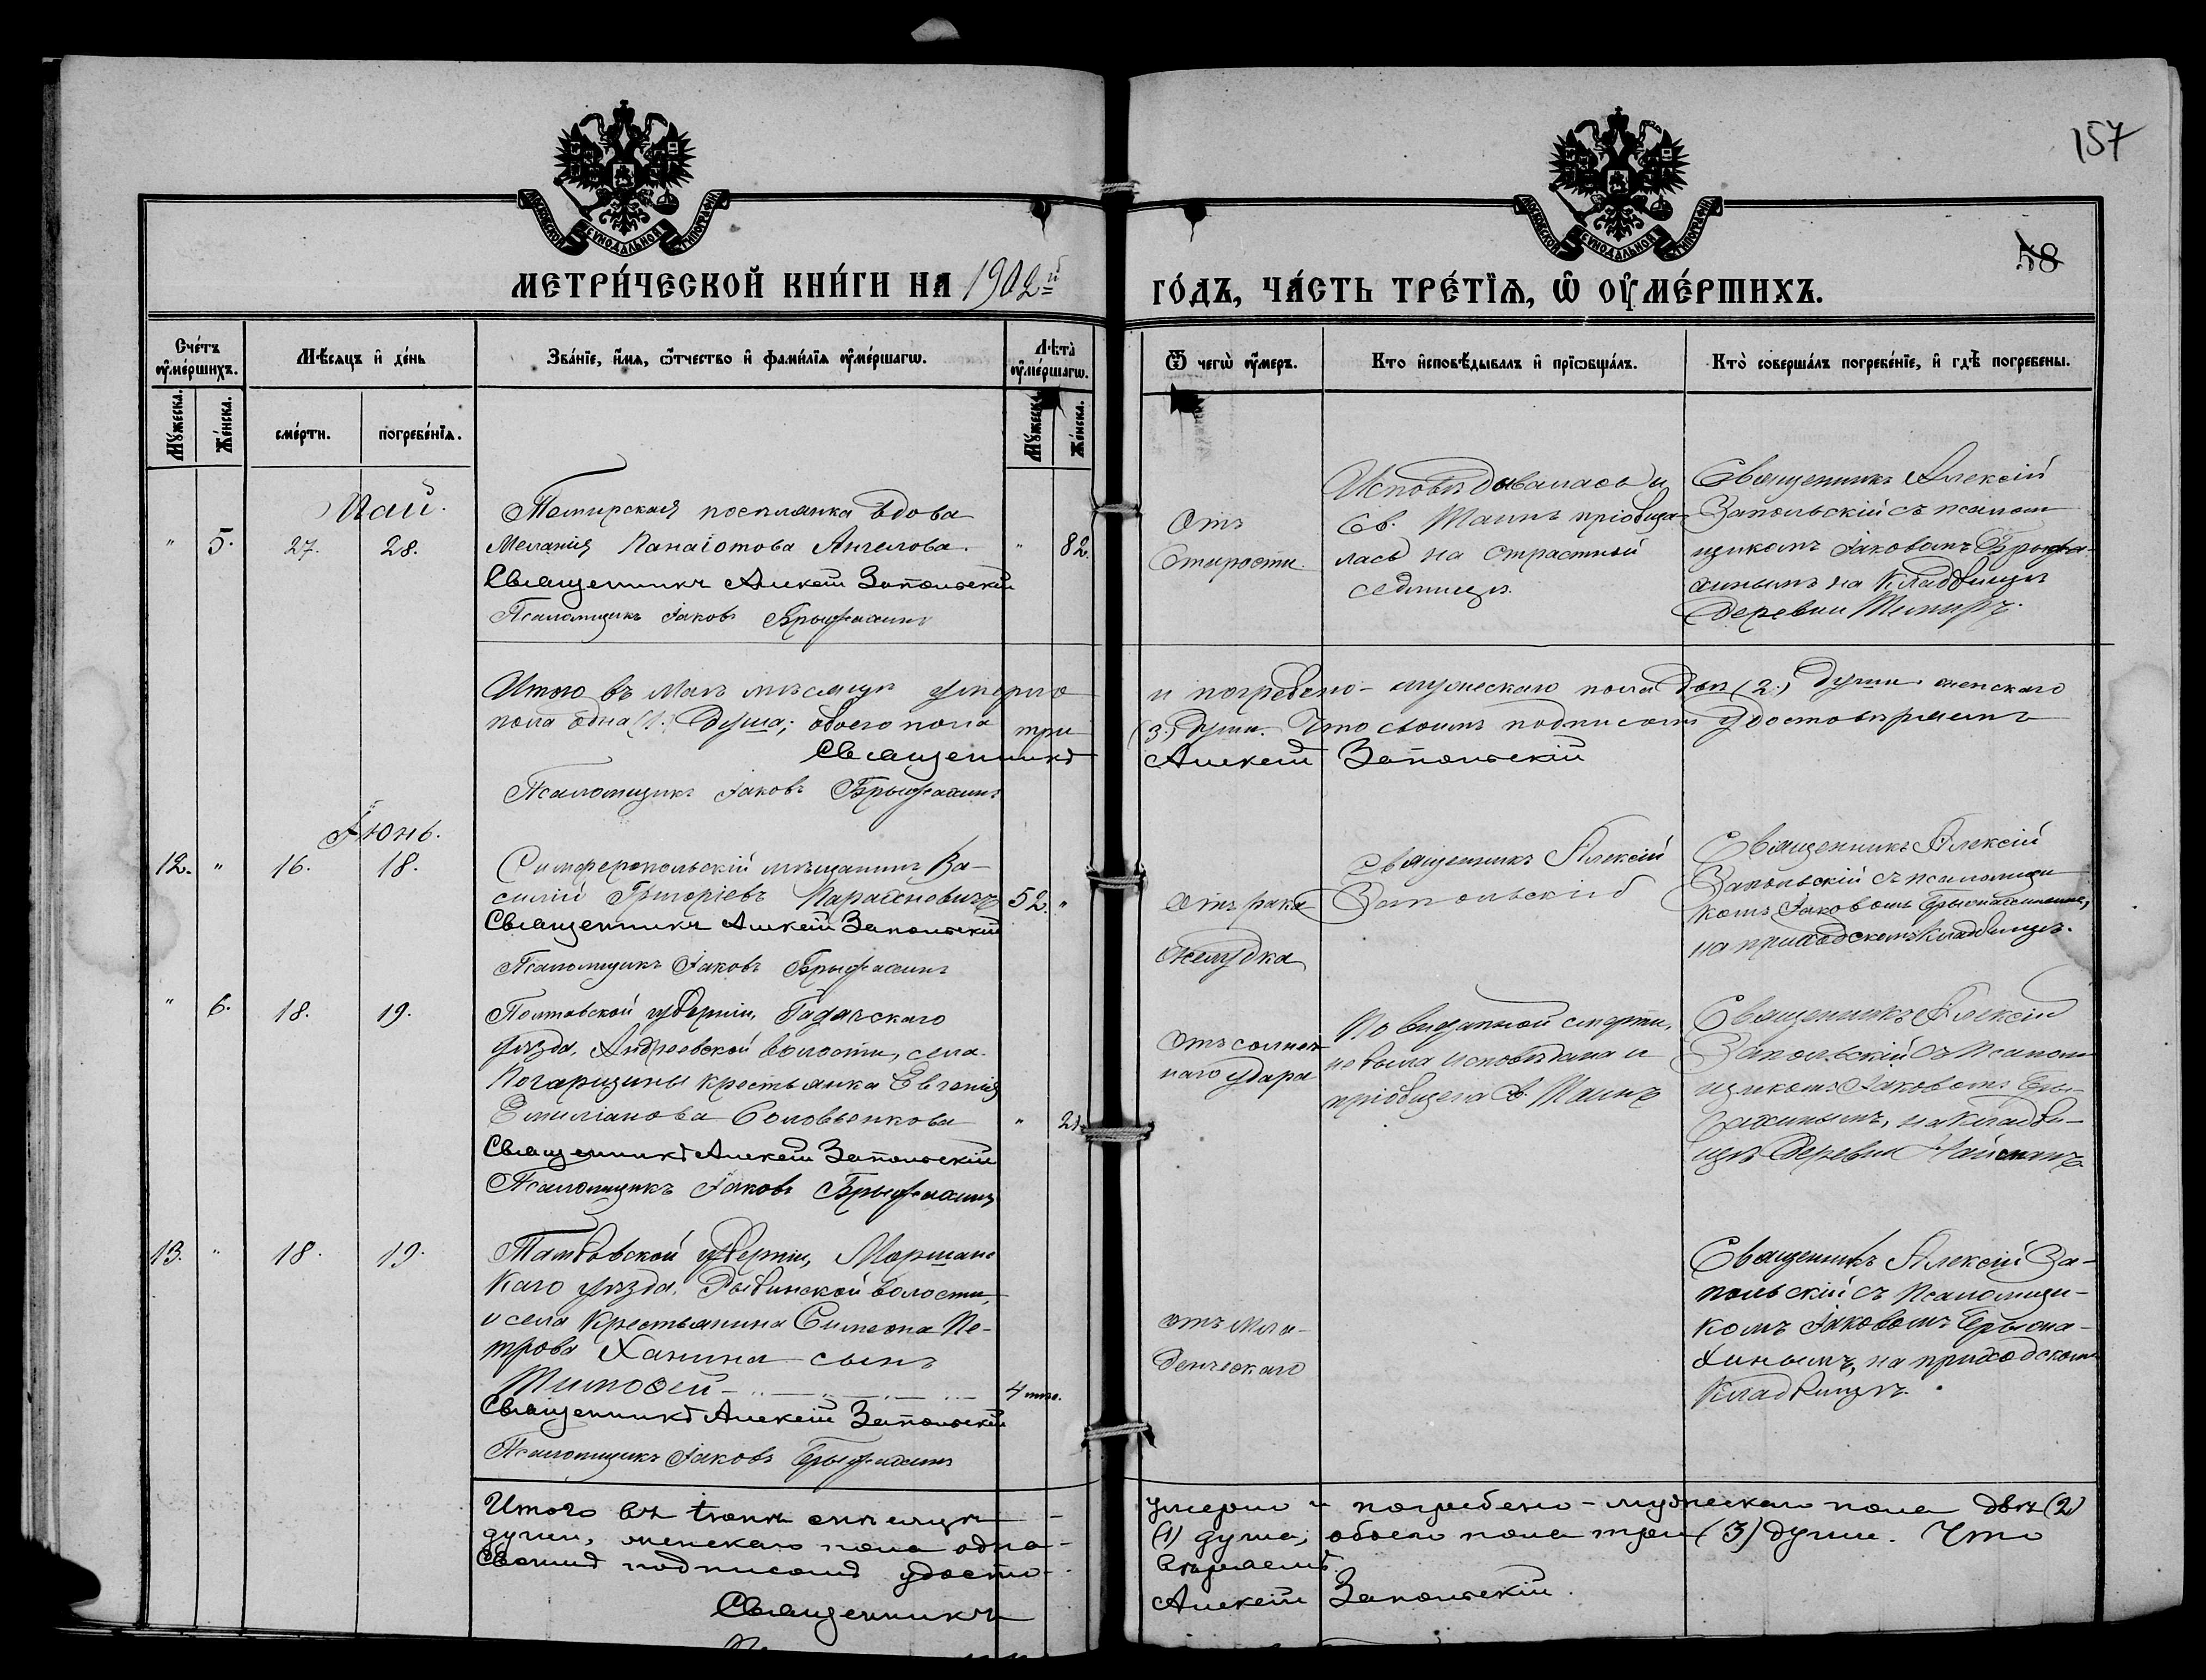 157
58
МОСКОВСКОЙ СѴНОДАЛЬНОЙ ТИПОГРАФІИ
МОСКОВСКОЙ СѴНОДАЛЬНОЙ ТИПОГРАФІИ
МЕТРИ́ЧЕСКОЙ КНИ́ГИ НА 1902й ГО́ДЪ, ЧА́СТЬ ТРЕ́ТІѦ, Ѿ ОУ҆МЕ́РШИХЪ.
Сче́тъ
оу҆ме́ршихъ.
Мꙋ́жеска.
Же́нска.
Мѣ́сѧцъ и҆ де́нь
сме́рти.
погребе́нїѧ.
Зва́нїе, и҆́мѧ, ѻ҆́тчество и҆ фами́лїѧ оу҆ме́ршагѡ.
Лѣ́та
оу҆ме́ршагѡ.
Мꙋ́жеска.
Же́нска.
Ѿ чегѡ̀ оу҆́меръ.
Кто̀ и҆сповѣ́дывалъ и҆ прїѡбща́лъ.
Кто̀ соверша́лъ погребе́нїе, и҆ гдѣ̀ погребены.
Май.
" 5. 27. 28.
Темирская поселянка вдова
Меланія Панаіотова Ангелова. " 82.
Священникъ Алексій Запольскій
Псаломщикъ Іаковъ
Отъ
Старости.
Исповѣдывалась и
Св. Таинъ пріобща-
лась на страстной
седмицѣ.
Священникъ Алексій
Запольскій съ псалом
щикомъ Іаковомъ
на кладбищѣ
деревни Темиръ.
Итого въ Маѣ мѣсяцѣ умерло и погребено - мужескаго пола двѣ (2.) души. женскаго
пола одна (1.) душа; обоего пола три (3.) души. Что своимъ подписомъ удостовѣряемъ
Священникъ Алексій Запольскій
Псаломщикъ Іаковъ
Іюнь.
12. " 16. 18.
Симферопольскій мѣщанинъ Ва-
силій Григоріевъ 52. "
Священникъ Алексій Запольскій
Псаломщикъ Іаковъ
Отъ рака
желудка
Священникъ Алексій
Запольскій
Священникъ Алексій
Запольскій съ псаломщи
комъ Іаковомъ
на приходскомъ кладбищѣ.
" 6. 18. 19.
Полтавской губерніи, Гадячскаго
уѣзда, Андреевской волости, села
крестьянка Евгенія
Емиліанова Соловьенкова " 21.
Священникъ Алексій Запольскій
Псаломщикъ Іаковъ
Отъ солнеч
наго удара
По внезапной смерти,
не была исповѣдана и
пріобщена Св. Таинъ
Священникъ Алексій
Запольскій съ Псалом
щикомъ Іаковомъ
на кладби-
щѣ деревни
13. " 18. 19.
Тамбовской губерніи, Моршанс
каго уѣзда, волости
и села крестьянина Симеона Пе-
трова Ханина сынъ
Тимоѳей 4 мѣс.
Священникъ Алексій Запольскій
Псаломщикъ Іаковъ
отъ мла-
денческаго
Священникъ Алексій За-
польскій съ Псаломщи-
комъ Іаковомъ
на приходскомъ
кладбищѣ.
Итого въ Іюнѣ мѣсяцѣ умерло и погребено - мужескаго пола двѣ (2)
души, женскаго пола одна (1) душа; обоего пола три (3) души. Что
своимъ подписомъ удосто-вѣряемъ.
Священникъ Алексій Запольскій.